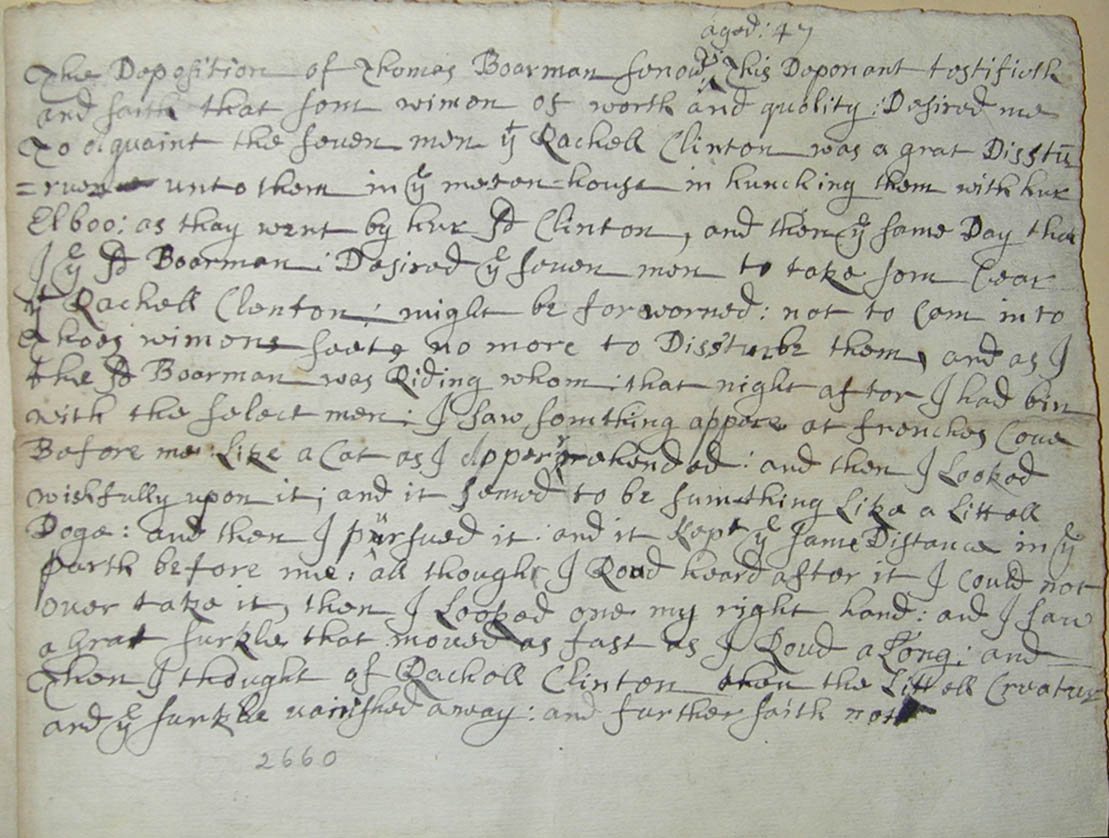 aged: 47
The Deposition of Thomas Boarman senour This Deponant testifieth
and saith that som wimen of worth and quolity: Desired me
To aquaint the seuen men yt Rachell Clinton was a grat Disstu
= unto them in ye meten house in hunching them with hur
Elboo: as thay went by hur sd Clinton, and then ye same Day that
I ye sd Boarman: Desired ye seuen men to take som Cear
yt Rachell Clenton: might be forworned: not to Com into
thoes wimens seets no more to Dissturbe them, and as I
the sd Boarman was Riding whom: that night aftor I had bin
with the select men: I saw somthing appere at frenches Coue
Before me Like a Cat as I apperrehended: and then I Looked
wishfully upon it; and it semed to be sumething Like a Littell
Doge: and then I pursued it: and it kept ye same Distance in ye
parth before me: all though I Roud heard after it I could not
ouer take it, then I Looked one my right hand: and I saw
a Grat turkle that moued as fast as I Roud a Long: and
Then I thought of Rachell Clinton then the Littell Creatur
and ye turkle uanished away: and further saith not
2660